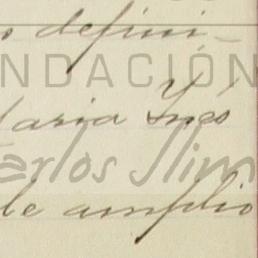 s defini-
FUNDACIÓN
Maria Ynés
Carlos Slim
de amplio